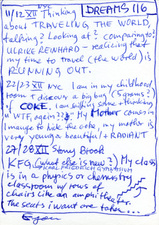 DREAMS 116
11/12 XII Thinking
about TRAVELING THE WORLD,
talking? Looking at? comparing to?
ULRIKE REWHARD - realizing that
my time to travel (the world) is
RUNNING OUT.
22/23 XII NYC I am in my childhood
room + discover a big (5 grams?)
of COKE. I am sniffing some + thinking
"WTF, again??" My Mother comes in
I manage to hide the coke, my mother is
very young + beautiful + RADIANT
27/28 XII Stony Brook
KFG (what else is new?) My class
is in a physics or chemistry
classroom w/ rows of
chairs like an amphitheater.
The seats I want are taken...